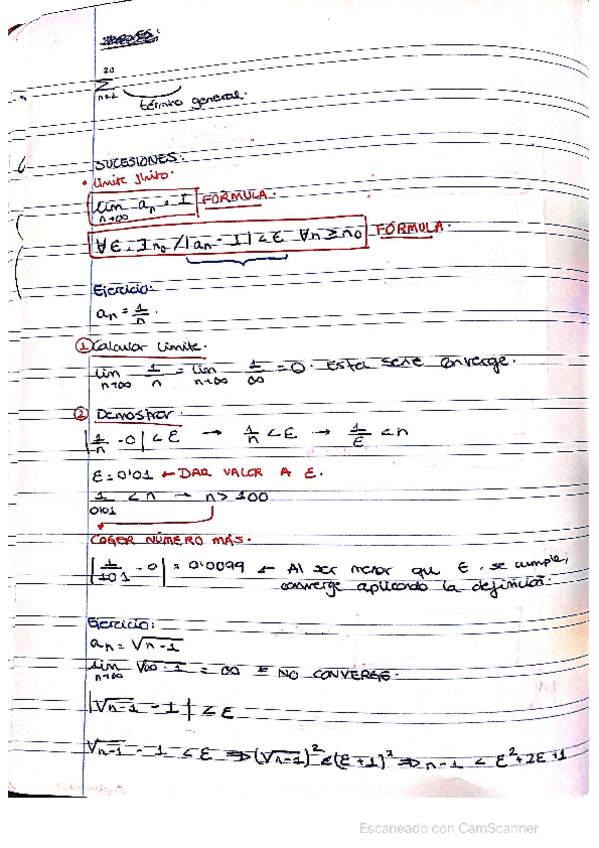 20
Σ
n=1
término general.
SUCESIONES:
• Límite finito.
lim aₙ = I FÓRMULA.
n→∞
∀ε. ∃n₀ / |aₙ - I| < ε ∀n ≥ n₀ FÓRMULA.
Ejercicio:
aₙ = 1/n.
① Calcular límite.
lim 1/n = lim 1/∞ = 0. Esta serie converge.
n→∞ n→∞
② Demostrar.
|1/n - 0| < ε → 1/n < ε → 1/ε < n
ε = 0'01 ← DAR VALOR A ε.
1/0'01 < n → n > 100
COGER NÚMERO MÁS.
|1/101 - 0| = 0'0099 ← Al ser menor que ε, se cumple,
converge aplicando la definición.
Ejercicio:
aₙ = √n-1
lim √∞-1 = ∞ = NO CONVERGE.
n→∞
|√n-1 - 1| < ε
√n-1 - 1 < ε ⇒ (√n-1)² < (ε+1)² ⇒ n-1 < ε²+2ε+1
Escaneado con CamScanner